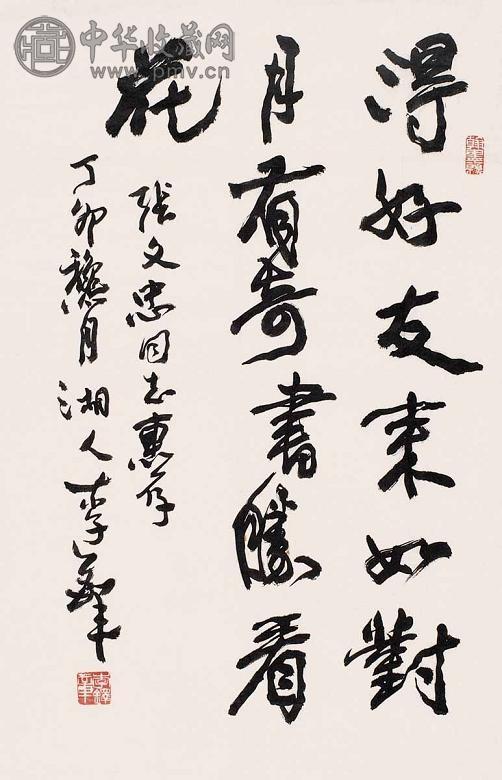 得好友来如對
月有奇書勝看
花
張文忠同志惠存
丁卯蘭月湖人李鐸
中华收藏网
www.pmv.cn